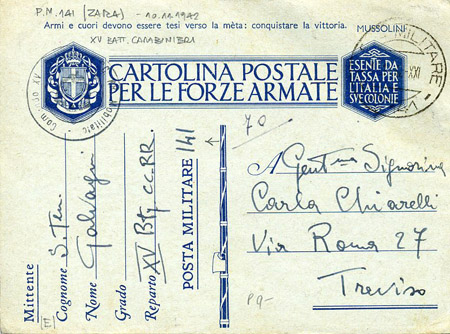 P.M. 141 (ZARA) - 10.11.1942
Armi e cuori devono essere tesi verso la mèta: conquistare la vittoria. MUSSOLINI
XV BATT. CARABINIERI
CARTOLINA POSTALE
PER LE FORZE ARMATE
ESENTE DA
TASSA PER
L'ITALIA E
SVE COLONIE
MILITARE
XXI
141
70
Mittente
Cognome S. Ten.
Nome Galvagni
Grado
Reparto XV Btg CC.RR.
POSTA MILITARE 141
A Gent.ma Signorina
Carla Chiarelli
Via Roma 27
Treviso
P 9-